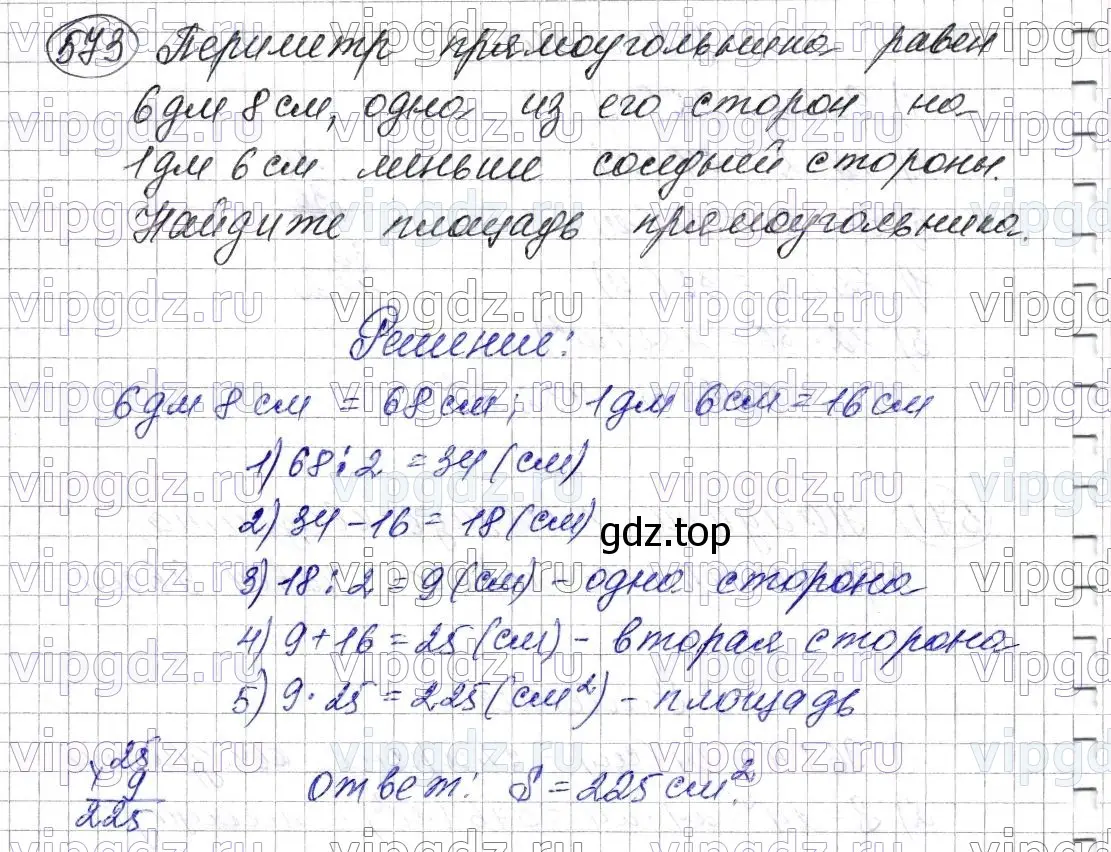 573 Периметр прямоугольника равен
6 дм 8 см, одна из его сторон на
1 дм 6 см меньше соседней стороны.
Найдите площадь прямоугольника.
Решение:
6 дм 8 см = 68 см; 1 дм 6 см = 16 см
1) 68:2 = 34 (см)
2) 34-16 = 18 (см)
gdz.top
3) 18:2 = 9 (см) - одна сторона
4) 9+16 = 25 (см) - вторая сторона
5) 9·25 = 225 (см²) - площадь
× 25
9
225
ответ: S = 225 см².
vipgdz.ru